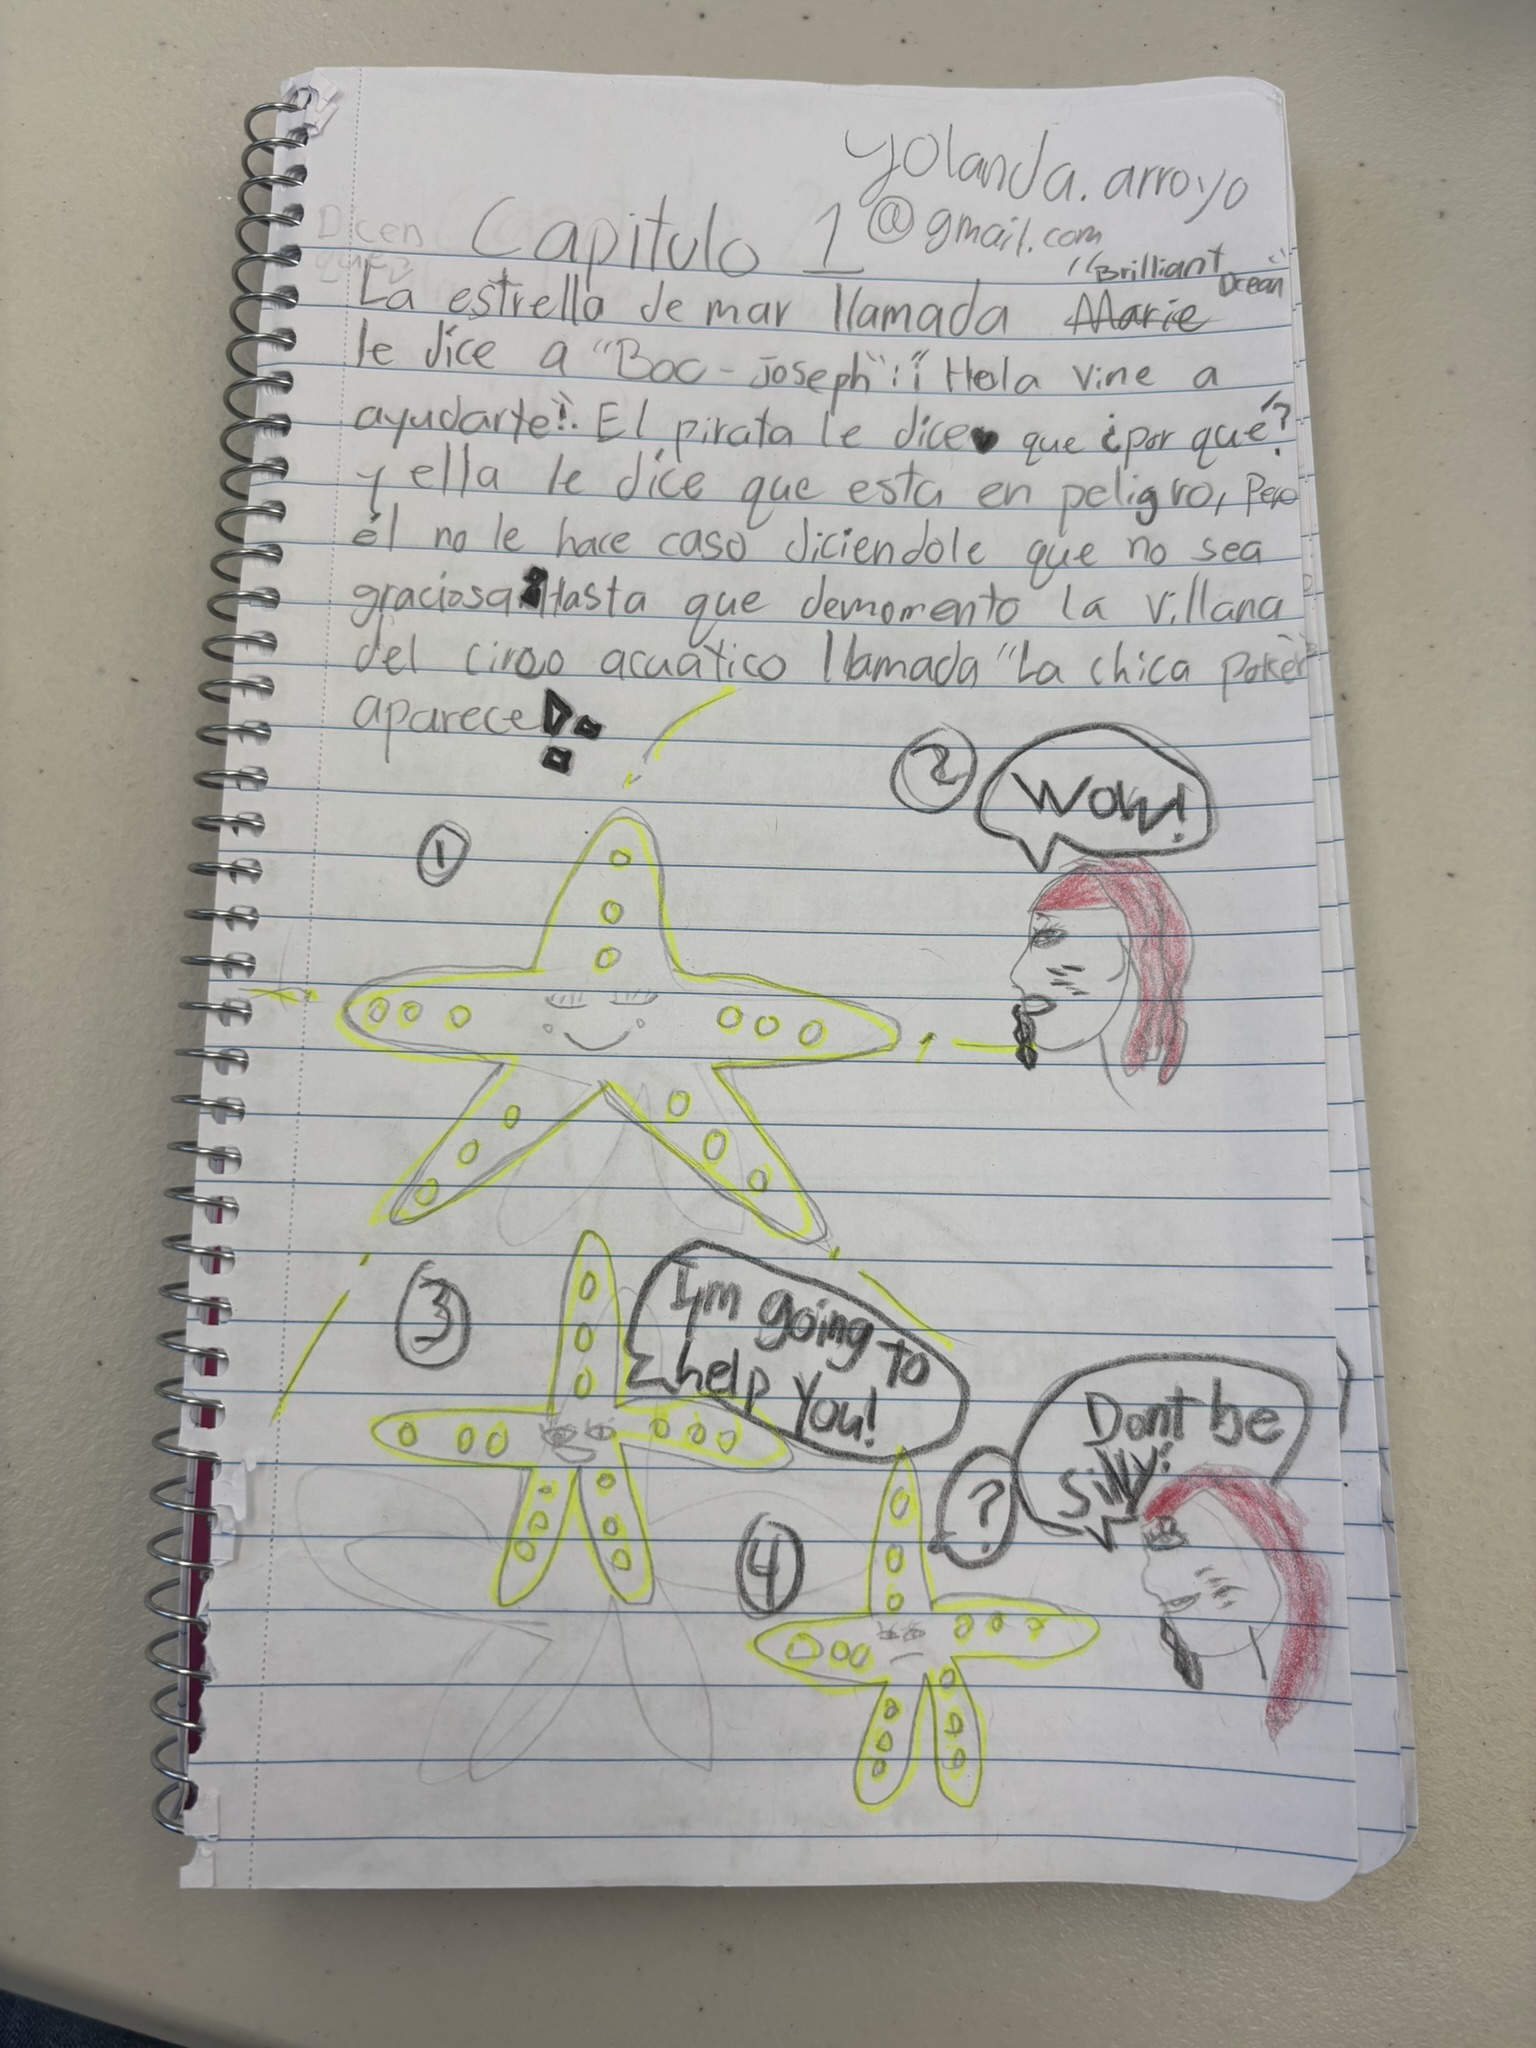 yolanda.arroyo
@gmail.com
Dicen
que
Capitulo 1
"Brilliant
Ocean"
La estrella de mar llamada Marie
le dice a "Boc-Joseph": ¡Hola vine a
ayudarte!. El pirata le dice que ¿por qué?
y ella le dice que esta en peligro, pero
él no le hace caso diciendole que no sea
graciosa. Hasta que demomento la villana
del circo acuático llamada "La chica poker"
aparece!
1
2
Wow!
3
I'm going to
help you!
4
?
Dont be
silly!